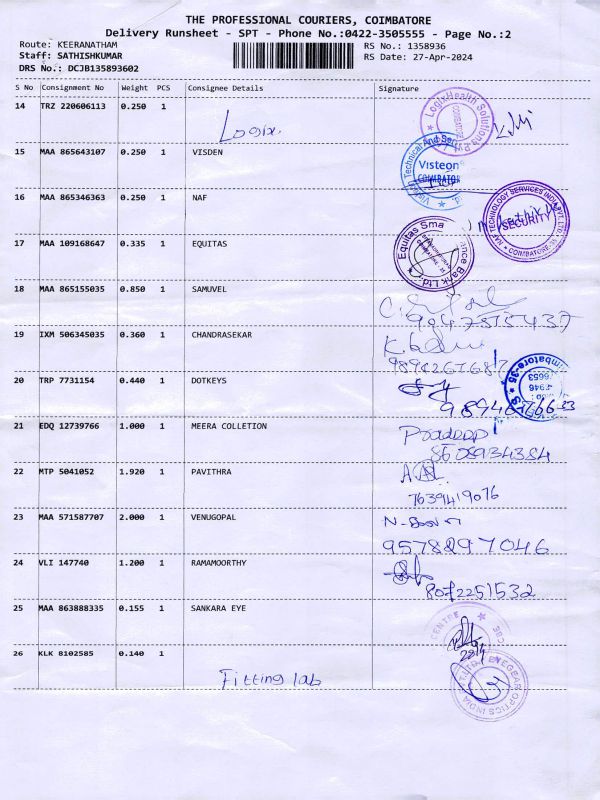 THE PROFESSIONAL COURIERS, COIMBATORE
Delivery Runsheet - SPT - Phone No.:0422-3505555 - Page No.:2
Route: KEERANATHAM
RS No.: 1358936
Staff: SATHISHKUMAR
RS Date: 27-Apr-2024
DRS No.: DCJB135893602
S No Consignment No Weight PCS Consignee Details Signature
14 TRZ 220606113 0.250 1 Logix.
LogixHealth Solutions
COIMBATORE
15 MAA 865643107 0.250 1 VISDEN
Technical And
Visteon
COIMBATORE
16 MAA 865346363 0.250 1 NAF
TECHNOLOGY SERVICES INDIA PVT LTD.
SECURITY
COIMBATORE-35
17 MAA 109168647 0.335 1 EQUITAS
Equitas Sma nce Bank Ltd.
18 MAA 865155035 0.850 1 SAMUVEL
9047515437
19 IXM 506345035 0.360 1 CHANDRASEKAR
20 TRP 7731154 0.440 1 DOTKEYS
imbatore-35
21 EDQ 12739766 1.000 1 MEERA COLLETION
Pradeep
8608934384
22 MTP 5041052 1.920 1 PAVITHRA
7639419076
23 MAA 571587707 2.000 1 VENUGOPAL
9578297046
24 VLI 147740 1.200 1 RAMAMOORTHY
8072251532
25 MAA 863888335 0.155 1 SANKARA EYE
CENTRE
CBE
26 KLK 8102585 0.140 1 Fitting lab
EYEGEAR OPTICS INDIA